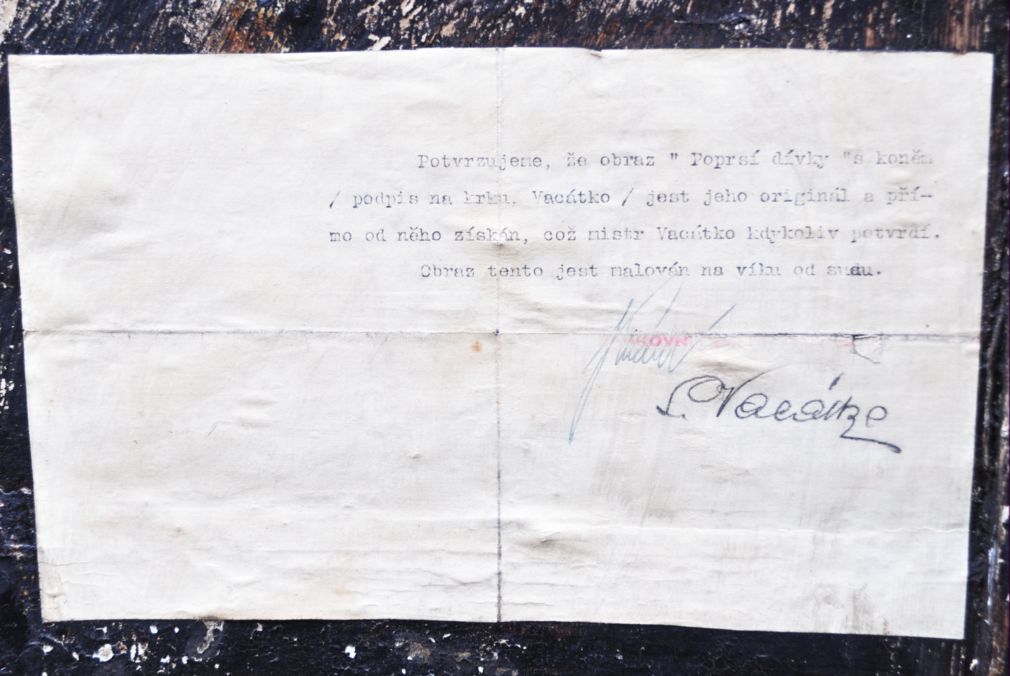 Potvrzujeme, že obraz " Poprsí dívky "s koněm
/ podpis na krku, Vacátko / jest jeho originál a pří-
mo od něho získán, což mistr Vacátko kdykoliv potvrdí.
Obraz tento jest malován na víku od sudu.
KOVN
L. Vacátko